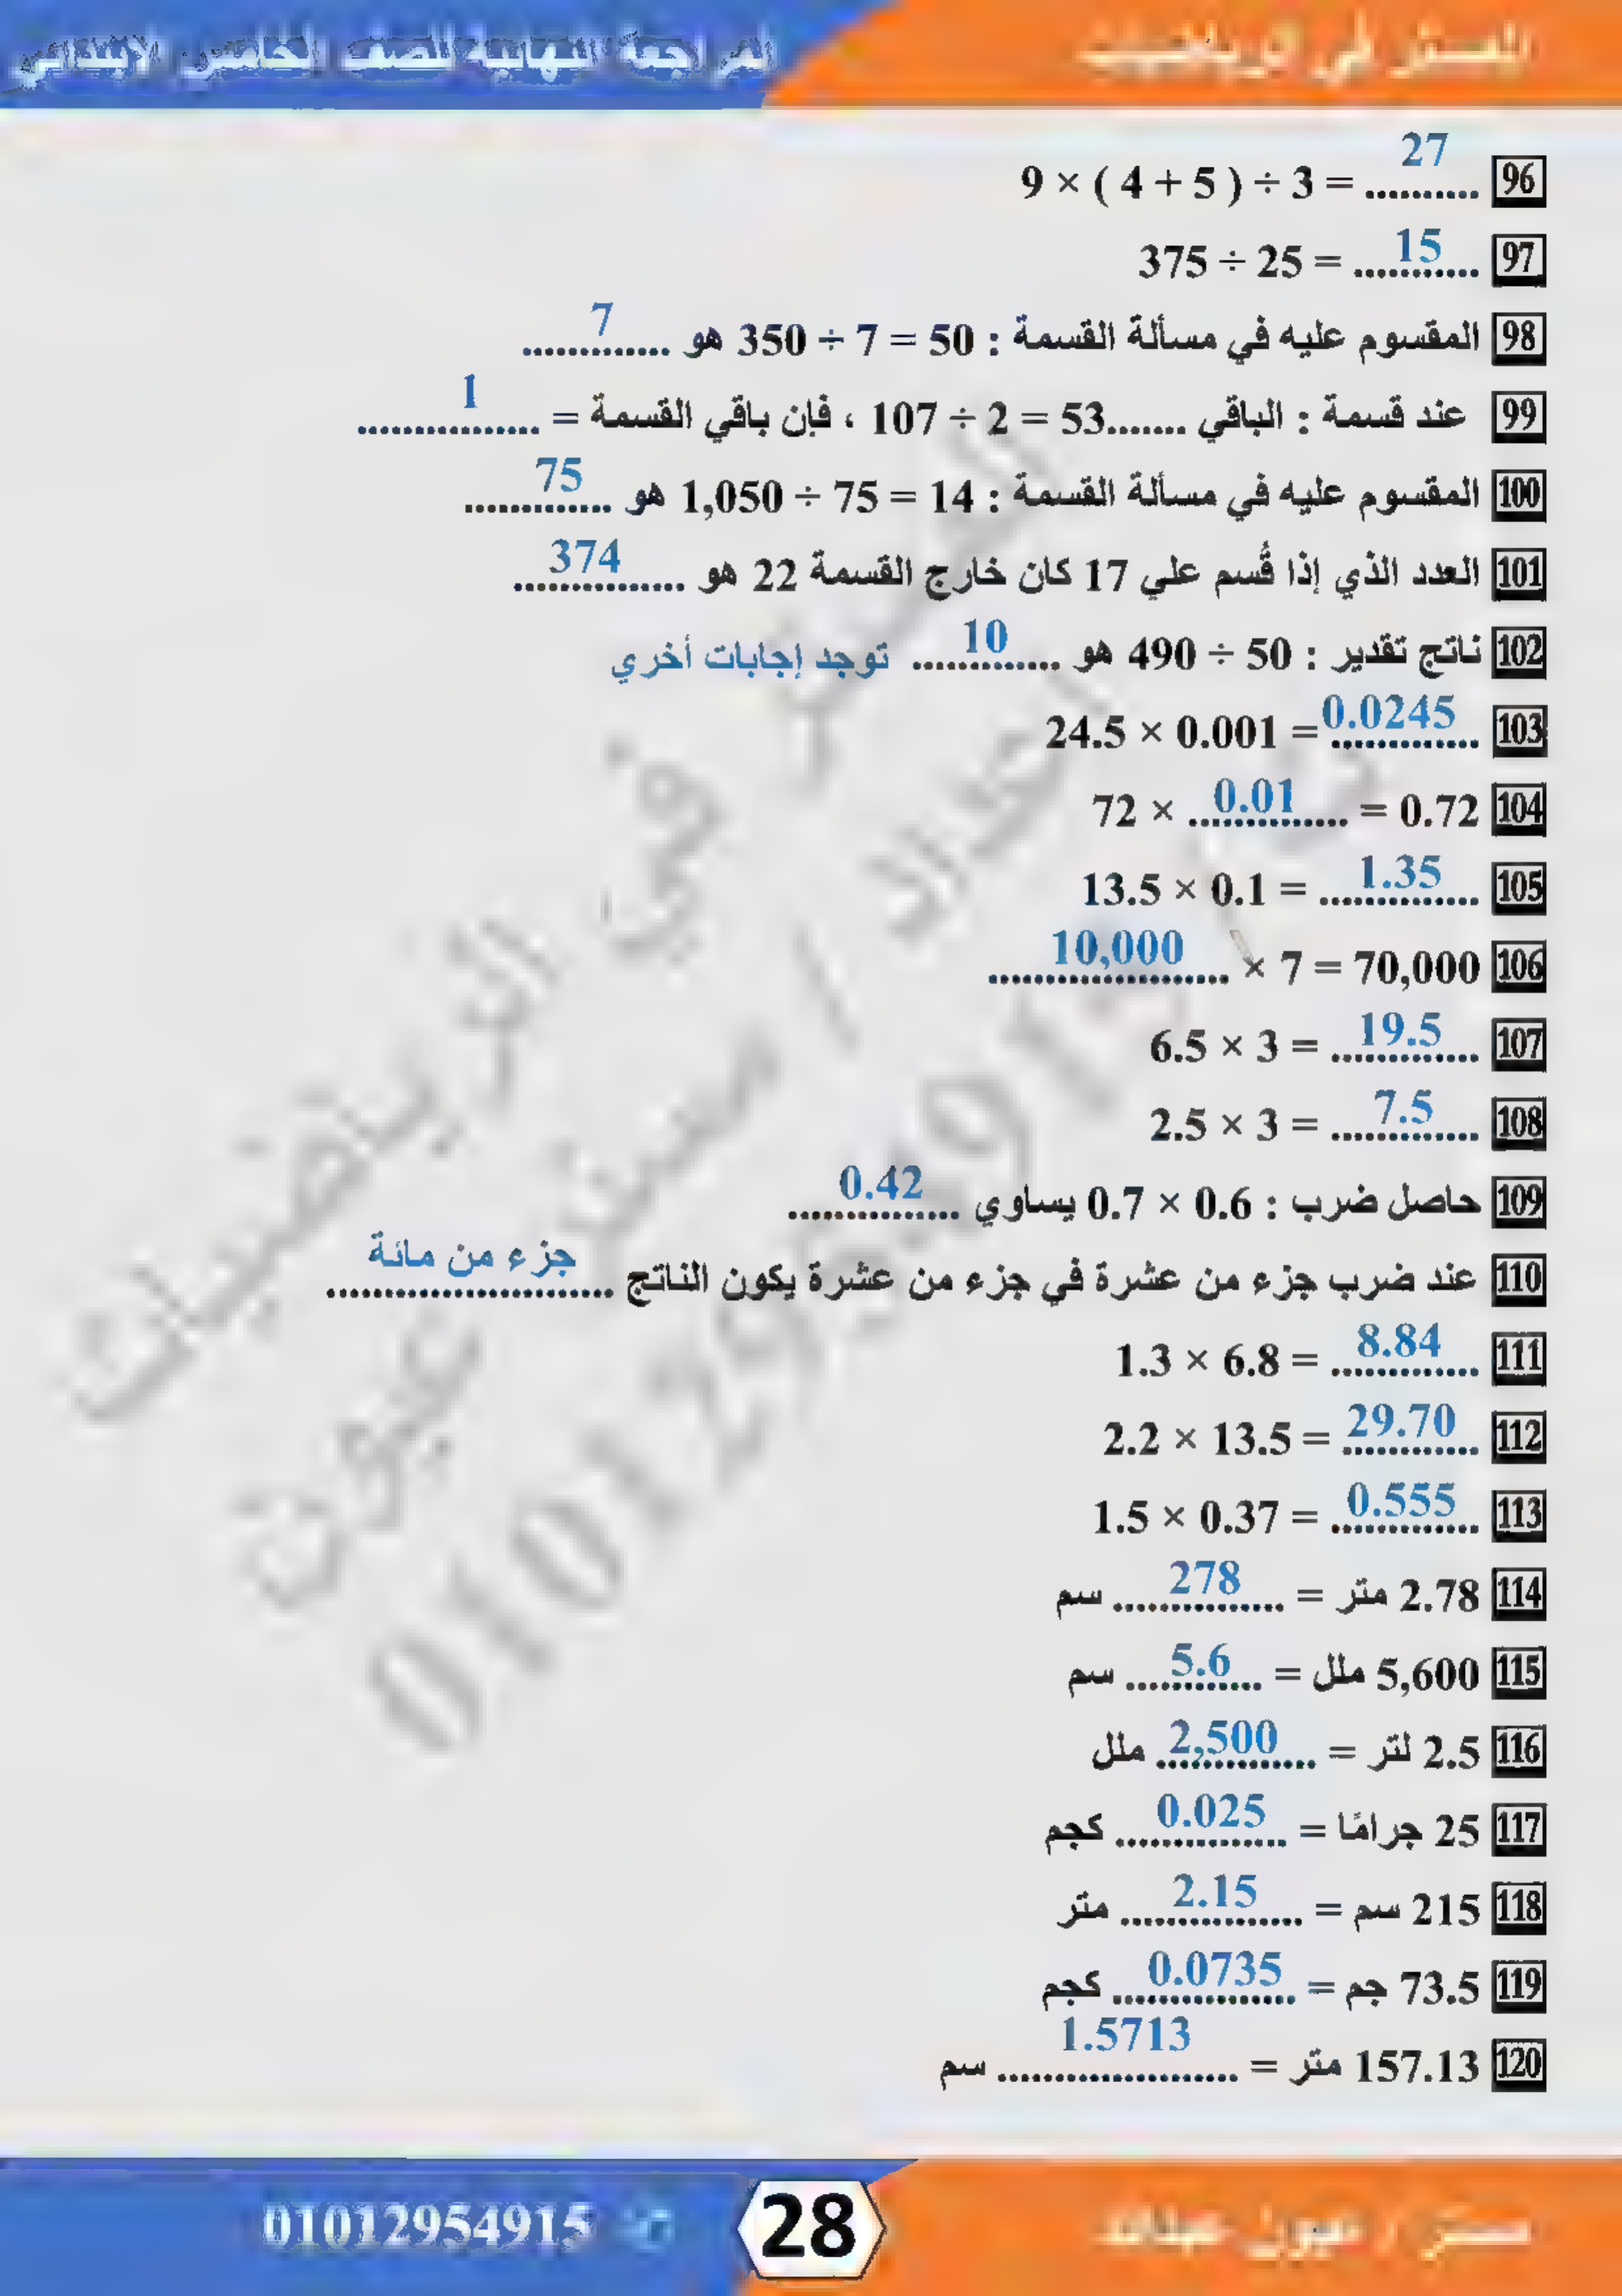 المراجعة النهائية للصف الخامس الابتدائي
المستر في الرياضيات
96 9 × ( 4 + 5 ) ÷ 3 = .......... 27
97 375 ÷ 25 = ........... 15
98 المقسوم عليه في مسألة القسمة : 50 = 7 ÷ 350 هو ............. 7
99 عند قسمة : الباقي .......53 = 2 ÷ 107 ، فإن باقي القسمة = ................ 1
100 المقسوم عليه في مسألة القسمة : 14 = 75 ÷ 1,050 هو ............. 75
101 العدد الذي إذا قُسم علي 17 كان خارج القسمة 22 هو ............... 374
102 ناتج تقدير : 50 ÷ 490 هو ............. 10 توجد إجابات أخري
103 24.5 × 0.001 = ............. 0.0245
104 72 × .............. 0.01 = 0.72
105 13.5 × 0.1 = .............. 1.35
106 ..................... 10,000 × 7 = 70,000
107 6.5 × 3 = ............. 19.5
108 2.5 × 3 = ............. 7.5
109 حاصل ضرب : 0.6 × 0.7 يساوي ............... 0.42
110 عند ضرب جزء من عشرة في جزء من عشرة يكون الناتج ......................... جزء من مائة
111 1.3 × 6.8 = ............. 8.84
112 2.2 × 13.5 = ............ 29.70
113 1.5 × 0.37 = ............. 0.555
114 2.78 متر = ............... 278 سم
115 5,600 ملل = ............ 5.6 سم
116 2.5 لتر = .............. 2,500 ملل
117 25 جرامًا = ............... 0.025 كجم
118 215 سم = ................ 2.15 متر
119 73.5 جم = ................ 0.0735 كجم
120 157.13 متر = ..................... 1.5713 سم
01012954915
28
مستر /